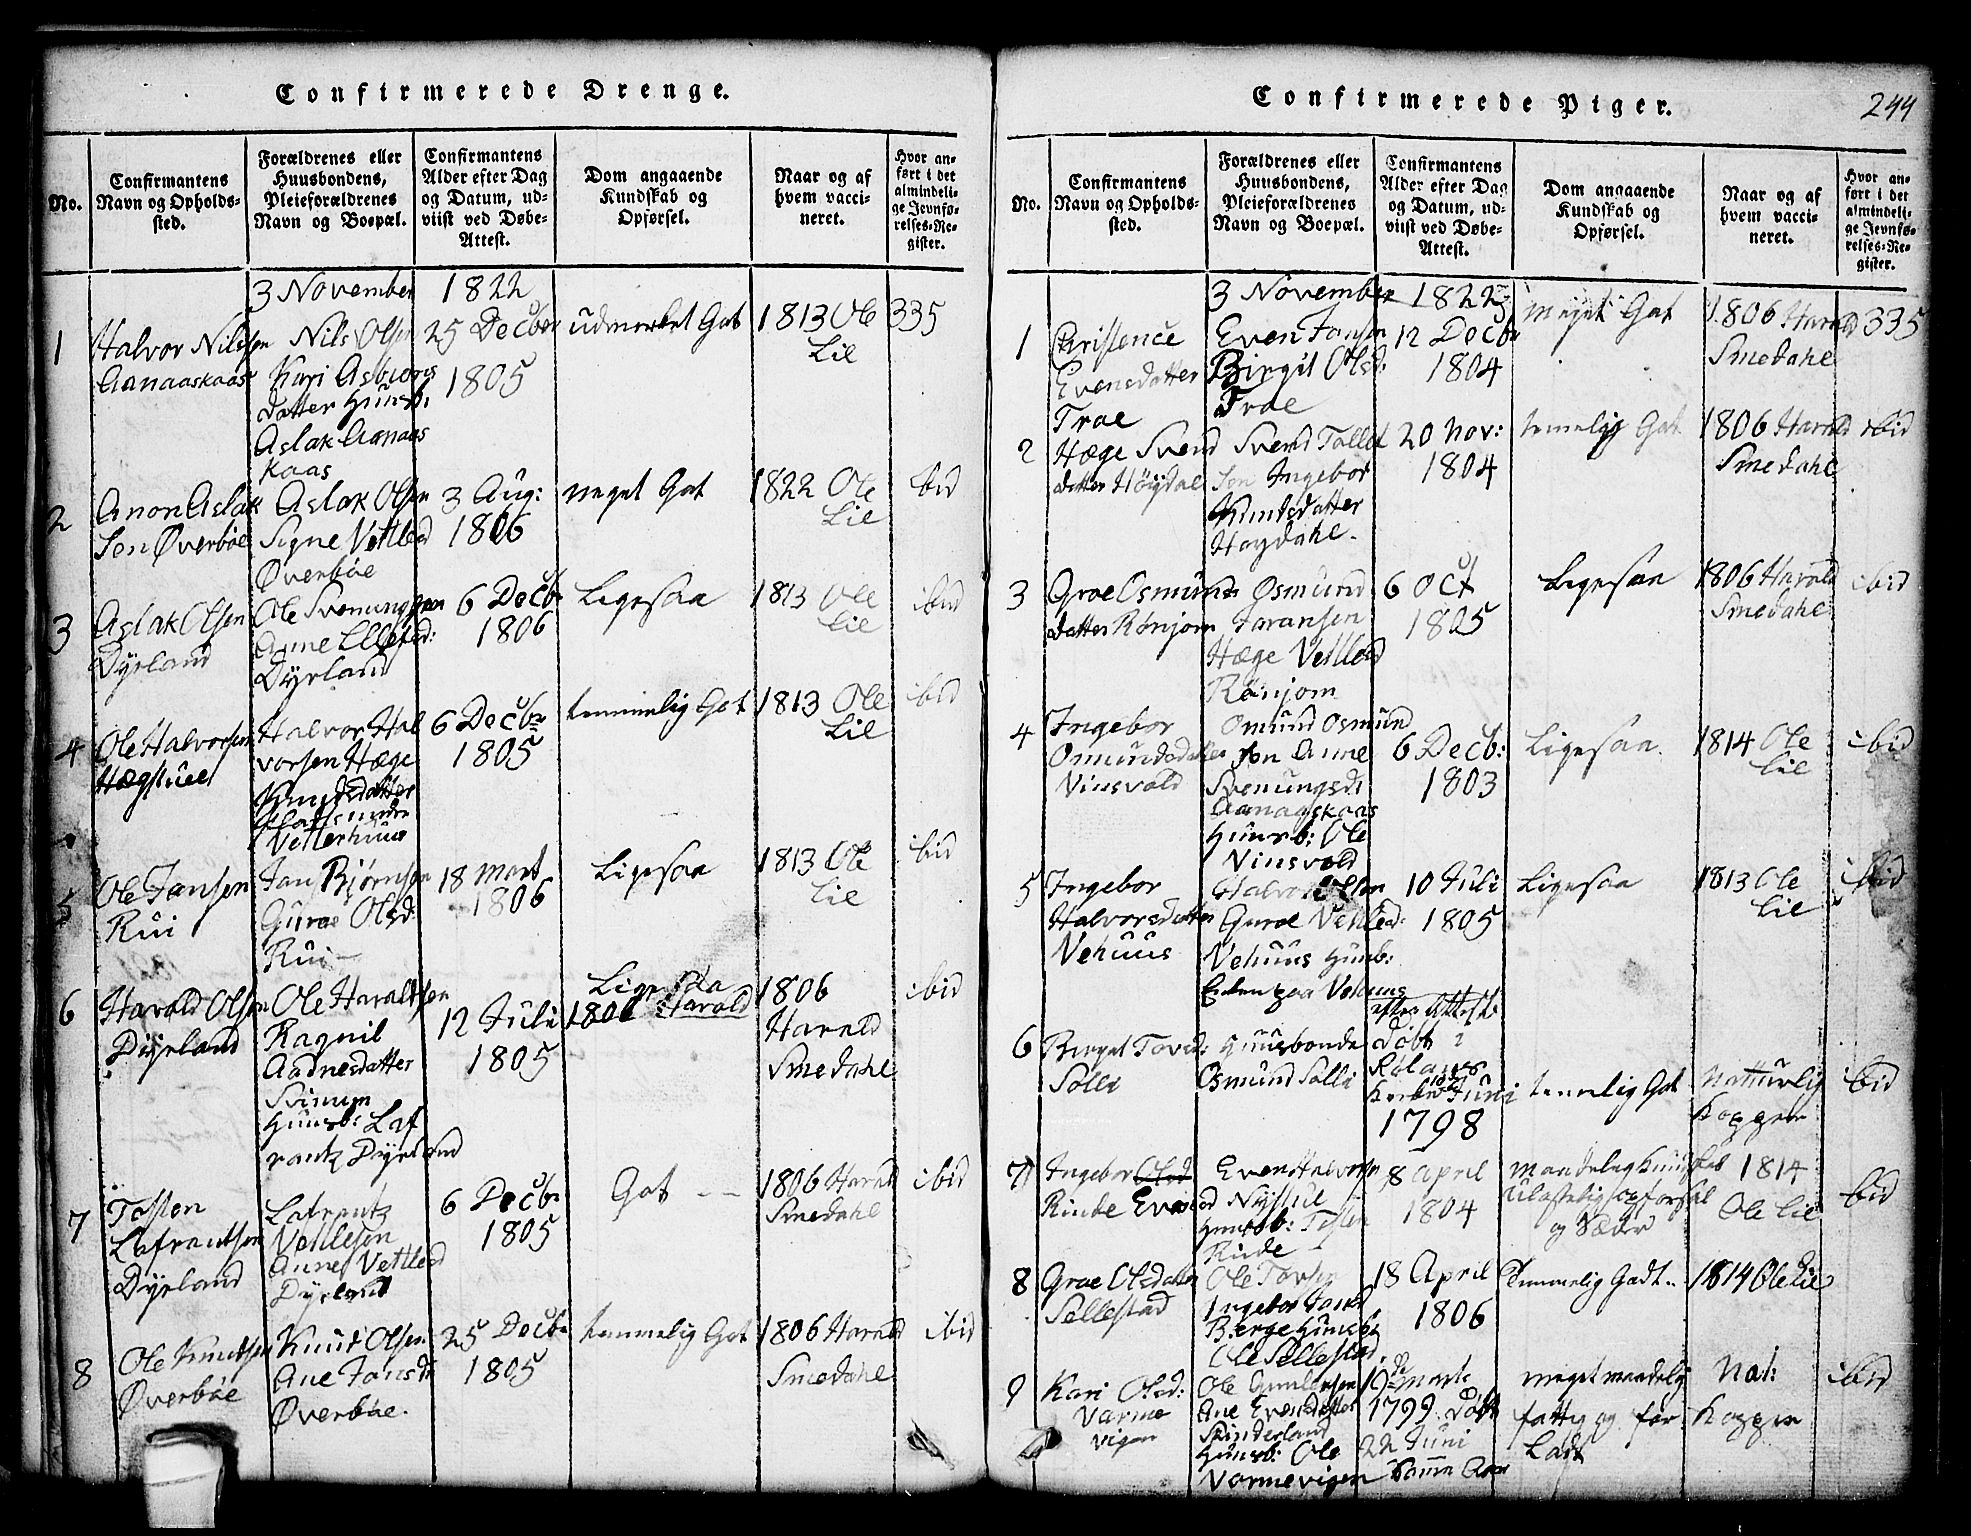 Confirmerede Drenge.
No.
Confirmantens
Navn og Opholds-
sted.
Forældrenes eller
Huusbondens,
Pleieforældrenes
Navn og Boepæl.
Confirmantens
Alder efter Dag
og Datum, ud-
viist ved Døbe-
Attest.
Dom angaaende
Kundskab og
Opførsel.
Naar og af
hvem vacci-
neret.
Hvor an-
ført i det
almindeli-
ge Jevnfø-
relses-Re-
gister.
3 November 1822
1
Halvor Nilssen
Aanaaskaas
Nils Olsen
Kari Asbiørns
datter Huusb:
Aslak Aanaas
kaas
25 Decber
1805
udmerket Got
1813 Ole
Lie
335
2
Anon Aslak
Sen Øverbøe
Aslak Olsen
Signe Vetlesd
Øverbøe
3 Aug:
1806
meget Got
1822 Ole
Lie
ibid
3
Aslak Olsen
Dyrland
Ole Svenungsen
Anne Ellefsd:
Dyrland
6 Decbr
1806
Ligesaa
1813 Ole
Lie
ibid
4
Ole Halvorsen
Hægstuel
Halvor Hal
vorsen Hæge
Knudsdatter
Vetterhuus
6 Decbr
1805
temmelig Got
1813 Ole
Lie
ibid
5
Ole Jansen
Rui
Jan Bjørnsen
Guroe Olsd:
Rui
18 Mart
1806
Ligesaa
1813 Ole
Lie
ibid
6
Harald Olsen
Dyrland
Ole Haraldsen
Ragnil
Aadnesdatter
Svinum
Huusb: Laf
rantz Dyrland
12 Juli
1805
Ligesaa
1806 Harald
1806
Harald
Smedahl
ibid
7
Tosten
Lafrantsen
Dyrland
Lafrentz
Vetlesen
Anne Vetlesd
Dyrland
6 Decbr
1805
Got
1806 Harald
Smedahl
ibid
8
Ole Knutsen
Øverbøe
Knut Olsen
Ane Jansd:
Øverbøe.
25 Decbr
1805
temmelig Got
1806 Harald
Smedahl
ibid
Confirmerede Piger.
244
No.
Confirmantens
Navn og Opholds-
sted.
Forældrenes eller
Huusbondens,
Pleieforældrenes
Navn og Boepæl.
Confirmantens
Alder efter Dag
og Datum, ud-
viist ved Døbe-
Attest.
Dom angaaende
Kundskab og
Opførsel.
Naar og af
hvem vacci-
neret.
Hvor an-
ført i det
almindeli-
ge Jevnfø-
relses-Re-
gister.
3 November 1822
1
Christence
Evensdatter
Troe
Even Jansen
Birgit Olsd:
Troe
12 Decbr
1804
meget Got
1806 Harald
Smedahl
335
2
Hæge Svend
datter Høydal
Svend Tollef
Sen Ingebor
Knudsdatter
Hoydahl.
20 Nov:
1804
temelig Got
1806 Harald
Smedahl
ibid
3
Groe Osmunds
datter Rønjom
Osmund
Jaransen
Hæge Vetlesd
Rønjom
6 Oct
1805
Ligesaa
1806 Harald
Smedahl
ibid
4
Ingebor
Osmundsdatter
Vinsvold
Omund Osmund
sen Anne
Svenungsd:
Aanaaskaas
Huusb: Ole
Vinsvold
6 Decb:
1803
Ligesaa.
1814 Ole
Lie
ibid
5
Ingebor
Halvorsdatter
Vehuus
Halvor Olsen
Guroe Vetlesd:
Vehuus Huusb:
Eden paa Vehuus
10 Juli
1805
Ligesaa
1813 Ole
Lie
ibid
6
Birget Tovsd:
Solli
Huusbonde
Osmund Solli
efter Attest
Døbt i
Kerke Juni
1798
temelig Got
Natturlig
Kopper
ibid
7
Ingebor Olsd
Rinde Evensd
Even Halvorsen
Nystue
Huusb: Tosten
Rinde
8 April
1804
maadelig Kundskab
Ulastelig opførsel
og Sæder
1814
Ole Lie
ibid
8
Groe Olsdatter
Sellestad
Ole Tovsen
Ingebor
Berge Huusb:
Ole Sellestad.
18 April
1806
Temmelig Godt
1814 Ole Lie
9
Kari Olsd:
Varme
vigen
Ole Gunlegsen
Ane Evensdatter
Skinderland
Huusb: Ole
Varmevigen
19de Marts
1799 Døbt
22 Juni
samme Aar
meget maadelig
fattig og for
Ladt
Nat:
Kopper
ibid